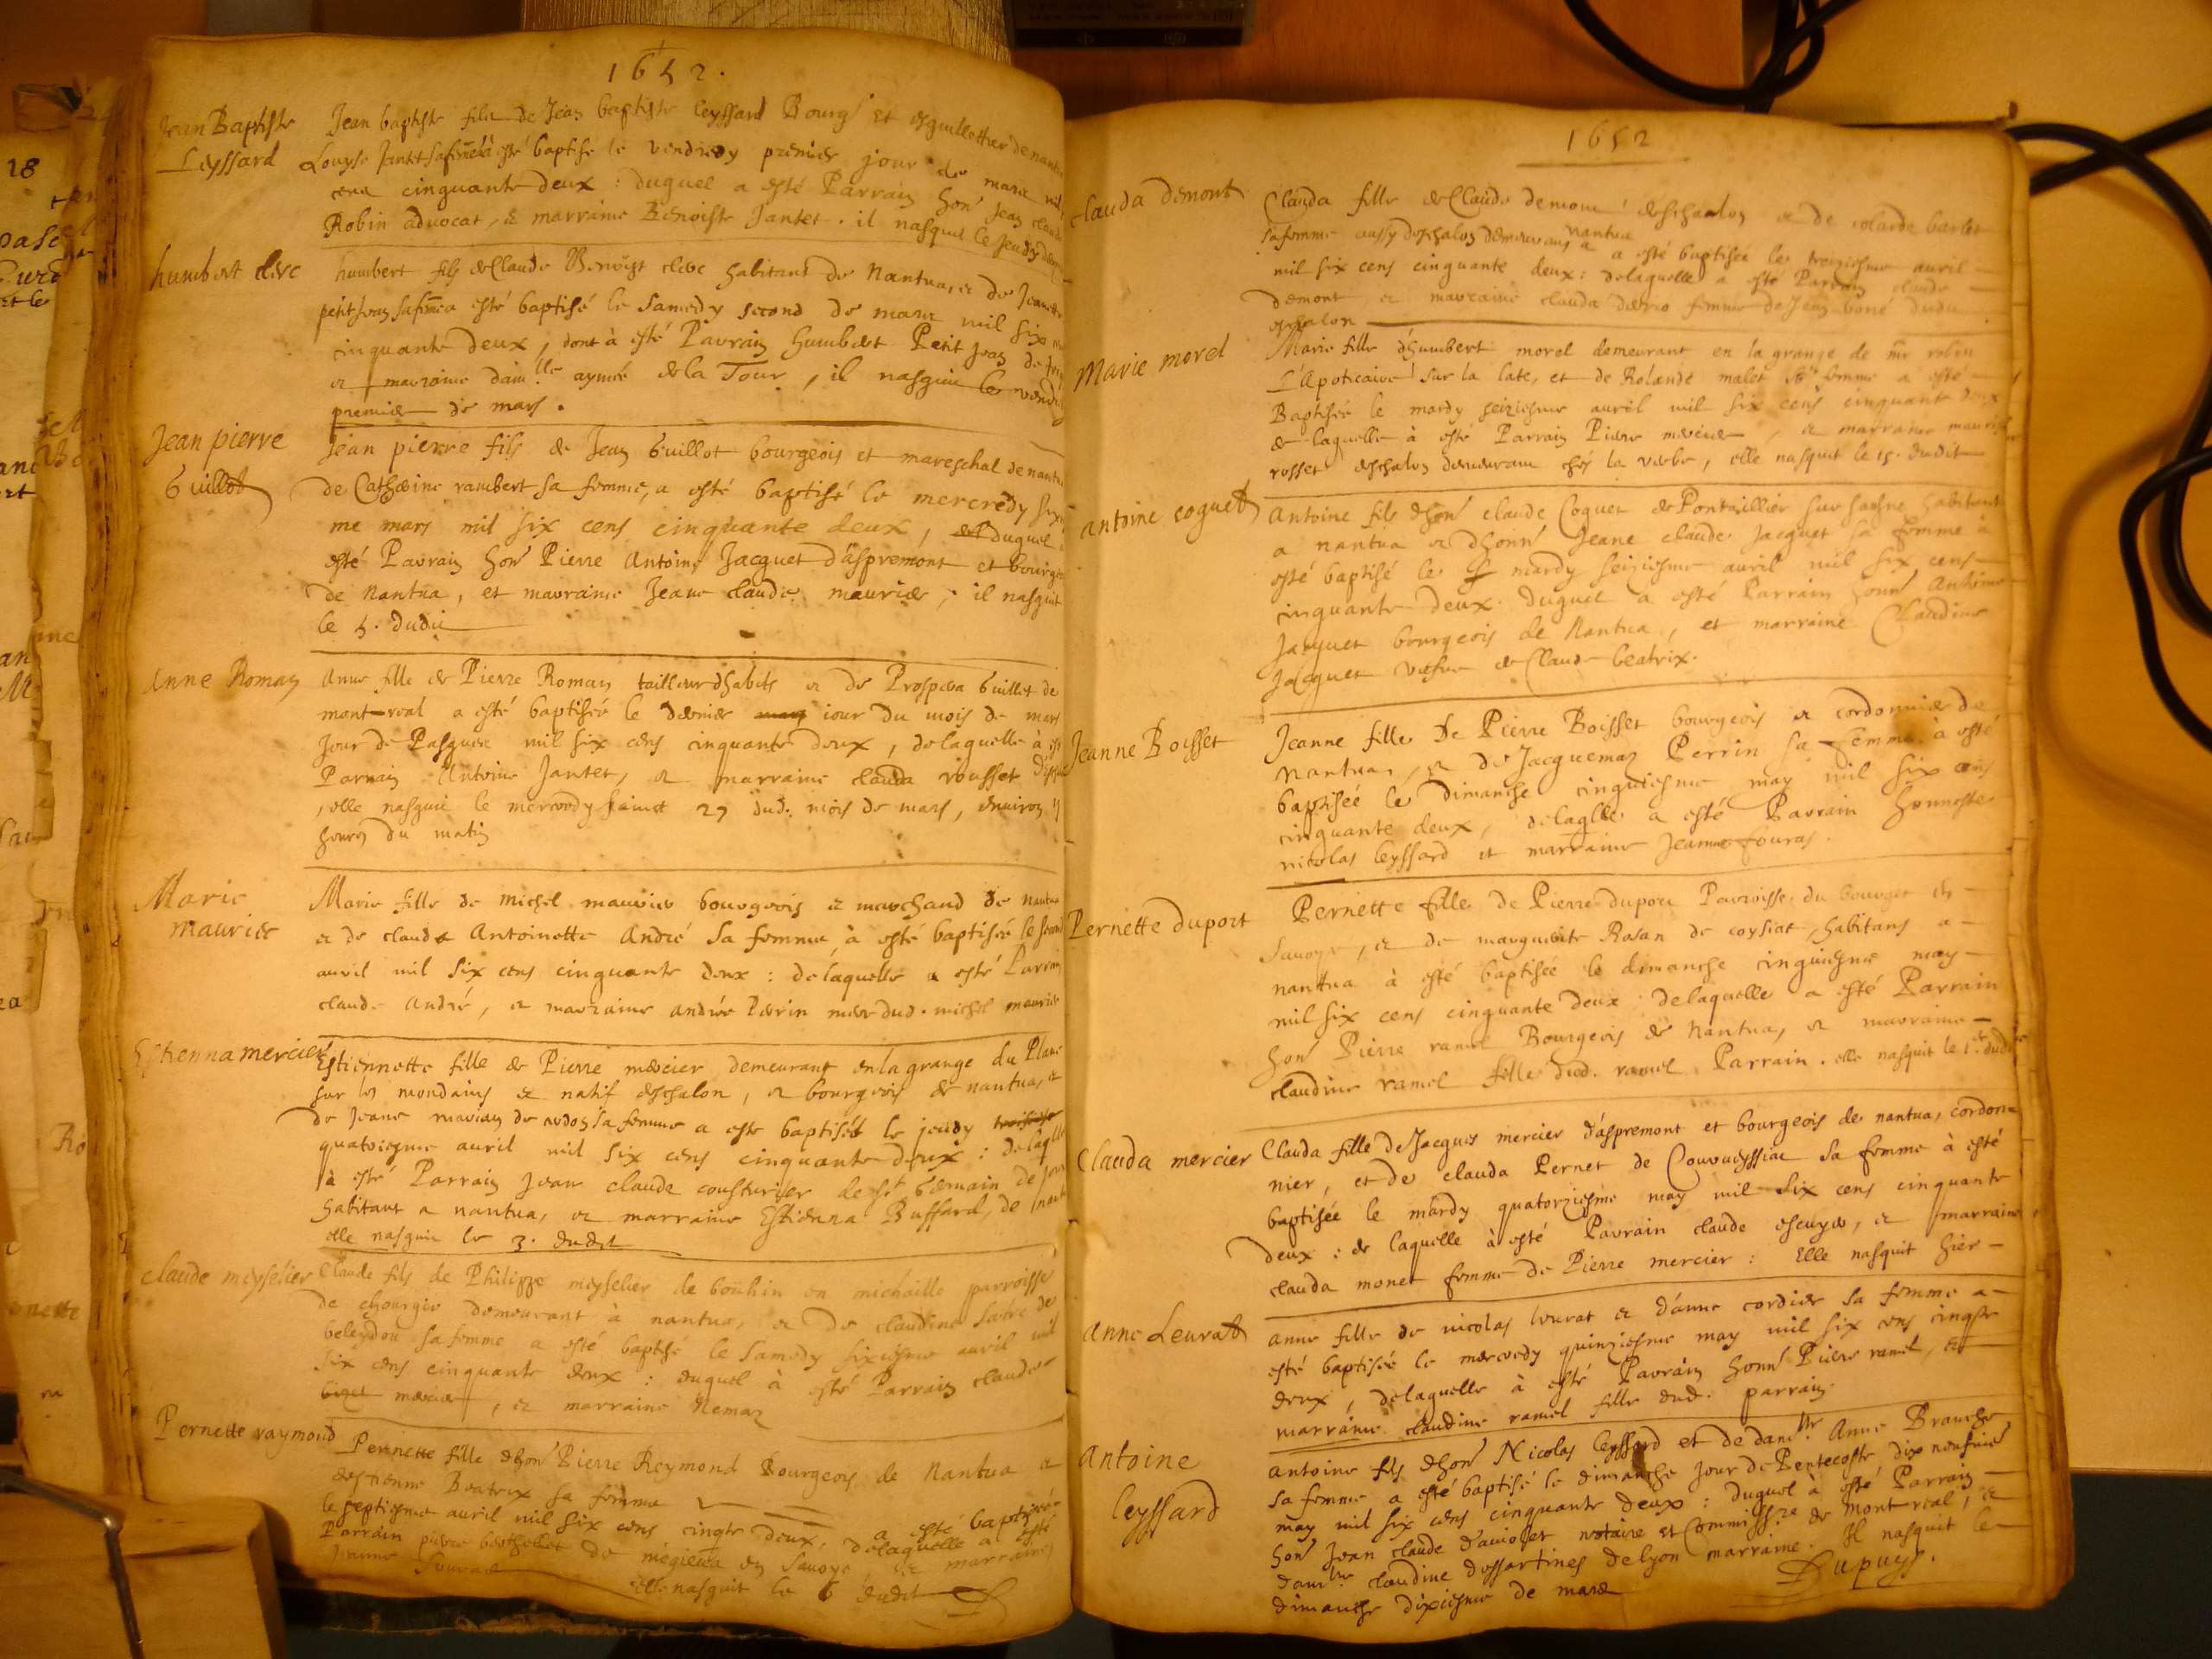 1652.
Jean Baptiste
Leyssard
Jean baptiste filz de Jean baptiste leyssard Bourg.s Et esguillettier de nantua
Louyse Jantet sa femme a esté baptise le vendredy premier jour de mars mil
cens cinquante deux : duquel a esté Parrain hon. Jean claude
Robin advocat, & marraine Benoiste Jantet. il nasquit le jeudy
humbert clerc
humbert filz de Claude Benoist clerc habitant de Nantua, et de Jeanette
petit Jean sa femme a esté baptisé le samedy second de mars mil six
cinquante deux, dont à esté Parrain humbert Petit Jean
et marraine dam.lle aymée de la Tour, il nasquit le vendredy
premier de mars.
Jean pierre
Guillot
Jean pierre filz de Jean Guillot bourgeois et mareschal de nantua
de Catherine rambert sa femme, a esté baptisé le mercredy
me mars mil six cens cinquante deux, duquel
esté Parrain hon. Pierre Antoine Jacquet d'aspremont et bourgeois
de Nantua, et marraine Jeane claudie maurier, il nasquit
le 5. dudit
Anne Roman
Anne fille de Pierre Roman tailleur d'habits et de Prospera Guillet de
mont-real a esté baptisée le dernier iour du mois de mars
Jour de Pasques mil six cens cinquante deux, de laquelle à esté
Parrain Antoine Jantet, et marraine clauda rousset
, elle nasquit le mercredy sainct 27 dud. mois de mars, environ
heures du matin
Marie
maurier
Marie fille de michel maurier bourgeois et marchand de nantua
et de claude Antoinette André sa femme, à esté baptisée le second
auril mil six cens cinquante deux : de laquelle a esté Parrain
claude André, et marraine andrée Perin mere dud. michel maurier
Estienna mercier
Estiennette fille de Pierre mercier demeurant en la grange du Plane
sur les mondains et natif deschalon, et bourgeois de nantua, et
de Jeane marian de sa femme a este baptisée le jeudy
quatriesme auril mil six cens cinquante deux : de laqlle
à esté Parrain Jean claude cousturier de st Germain de Joux
habitant a nantua, et marraine Estienna Buffard, de nantua
elle nasquit le 3. dudit
Claude meyselier
Claude fils de Philippe meyselier de bouhin en michaille parroisse
de demeurant à nantua, et de claudine de
beleydou sa femme a esté baptisé le samedy sixiesme auril mil
six cens cinquante deux : duquel à esté Parrain claude
mercier, et marraine Nemaz
Pernette raymond
Pernette fille d'hon. Pierre Reymond Bourgeois de Nantua et
d'estienne Beatrix sa femme a esté baptisée
le septiesme auril mil six cens cinqte deux, de laquelle a esté
Parrain pierre berthellet de megieva en Savoye et marraine
Jeanne Fouras elle nasquit le 6 dudit
1652
Clauda demont
Clauda fille de Claude demont deschalon et de rolande barlet
sa femme aussy deschalon demeurans a nantua a esté baptisée le treiziesme auril
mil six cens cinquante deux : de laquelle a esté Parrain claude
demont et marraine clauda femme de Jean
eschalon
Marie morel
Marie fille d'humbert morel demeurant en la grange de mr robin
L'Apoticaire sur la late, et de Rolande malet sa femme a esté
Baptisée le mardy seiziesme auril mil six cens cinquante deux
de laquelle à esté Parrain Pierre mercier, et marraine
rosset deschalon demeurant chés la verbe, elle nasquit le 15. dudit
Antoine coquet
Antoine fils d'hon. claude Coquet de Pontaillier sur saosne habitant
a nantua et d'honn. Jeane claude Jacquet sa femme à
esté baptisé le mardy seiziesme auril mil six cens
cinquante deux. duquel a esté Parrain honn. Anthoine
Jacquet bourgeois de Nantua, et marraine Claudine
Jacquet vesve de Claude beatrix.
Jeanne Boisset
Jeanne fille De Pierre Boisset bourgeois et cordonnier de
Nantua, et de Jacquemaz Perrin sa femme à esté
baptisée le dimanche cinquiesme may mil six cens
cinquante deux, de laqlle a esté Parrain honneste
nicolas leyssard et marraine Jeanne fouras.
Pernette duport
Pernette fille de Pierre duport Parroisse du bourget en
Savoye, et de marguerite Rosan de coysiat, habitans a
nantua à esté baptisée le dimanche cinquiesme may
mil six cens cinquante deux de laquelle a esté Parrain
hon. Pierre ramel Bourgeois de Nantua, et marraine
claudine ramel fille dud. ramel Parrain. elle nasquit le 1er dudit
Clauda mercier
Clauda fille de Jacques mercier d'aspremont et bourgeois de nantua, cordon
nier, et de clauda Pernet de sa femme à esté
baptisée le mardy quatorziesme may mil six cens cinquante
deux : de laquelle à esté Parrain claude escuyer, et marraine
clauda monet femme de Pierre mercier : Elle nasquit hier
Anne Leurat
anne fille de nicolas leurat et d'anne cordier sa femme a
esté baptisée le mercredy quinziesme may mil six cens cinqte
deux, de laquelle à esté Parrain honn. Pierre ramel, et
marraine claudine ramel fille dud. parrain.
Antoine
leyssard
antoine fils d'hon. Nicolas leyssard et de dam.lle Anne Branche
sa femme a esté baptisé le dimanche jour de Pentecoste, dix neufuies
may mil six cens cinquante deux : duquel à esté Parrain
hon. Jean claude d'auiolet notaire et Commissre de mont real, et
dam.lle claudine dessartines de lyon marraine. Il nasquit le
dimanche dixiesme de mars
Dupuys.